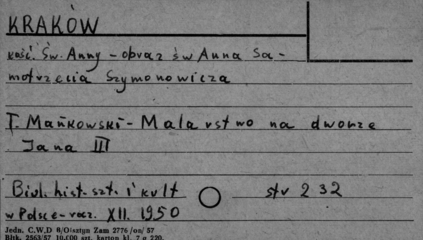 KRAKÓW
kość. Św. Anny - obraz św Anna Sa-
motrzecia Szymonowicza
T. Mańkowski - Malarstwo na dworze
Jana III
Biul. hist. szt. i kult str 232
w Polsce - rocz. XII. 1950
Jedn. C.W.D 8/Olsztyn Zam 2776 /on/ 57
Bltk. 2563/57 10.000 szt. karton kl. 7 g 220.